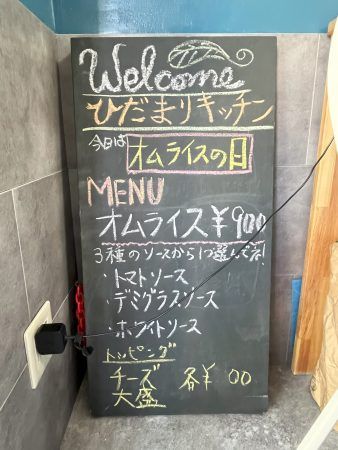 Welcome
ひだまりキッチン
今日は オムライスの日
MENU
オムライス ¥900
3種のソースから1つ選んでネ!
・トマトソース
・デミグラスソース
・ホワイトソース
トッピング
チーズ 各¥ 00
大盛